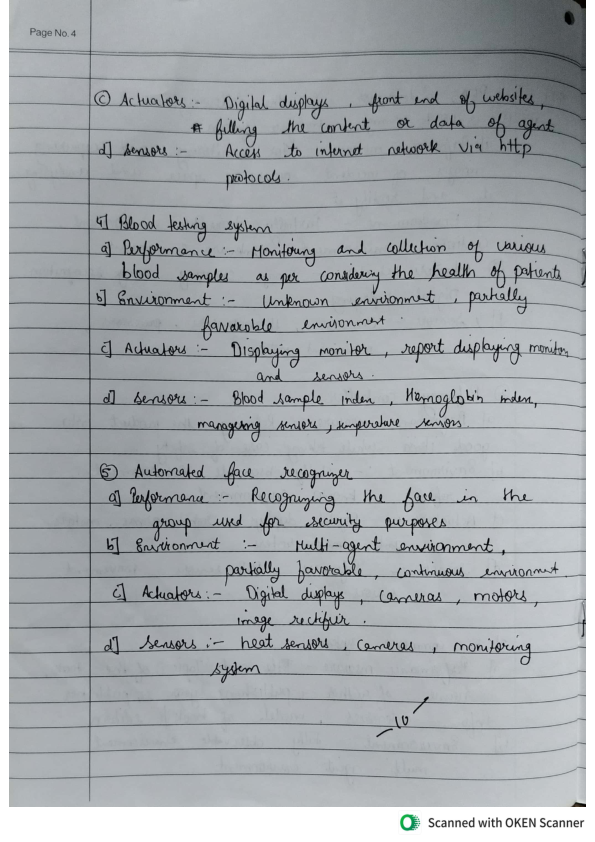 Page No. 4
Ⓒ Actuators :- Digital displays , front end of websites,
# filling the content or data of agent
d] Sensors :- Access to internet network via http
protocols.
4] Blood testing system
a] Performance :- Monitoring and collection of various
blood samples as per considering the health of patients
b] Environment :- Unknown environment , partially
favarable environment.
c] Actuators :- Displaying monitor , report displaying monitor,
and sensors.
d] Sensors :- Blood sample inden , Hemoglobin inden,
manageing sensors , temperature sensors.
⑤ Automated face recognizer
a] Performance :- Recognizing the face in the
group used for security purposes
b] Environment :- Multi-agent environment ,
partially favorable , continuous environment.
c] Actuators :- Digital displays , cameras , motors ,
image rectifier .
d] Sensors :- heat sensors , cameras , monitoring
system
10
Scanned with OKEN Scanner